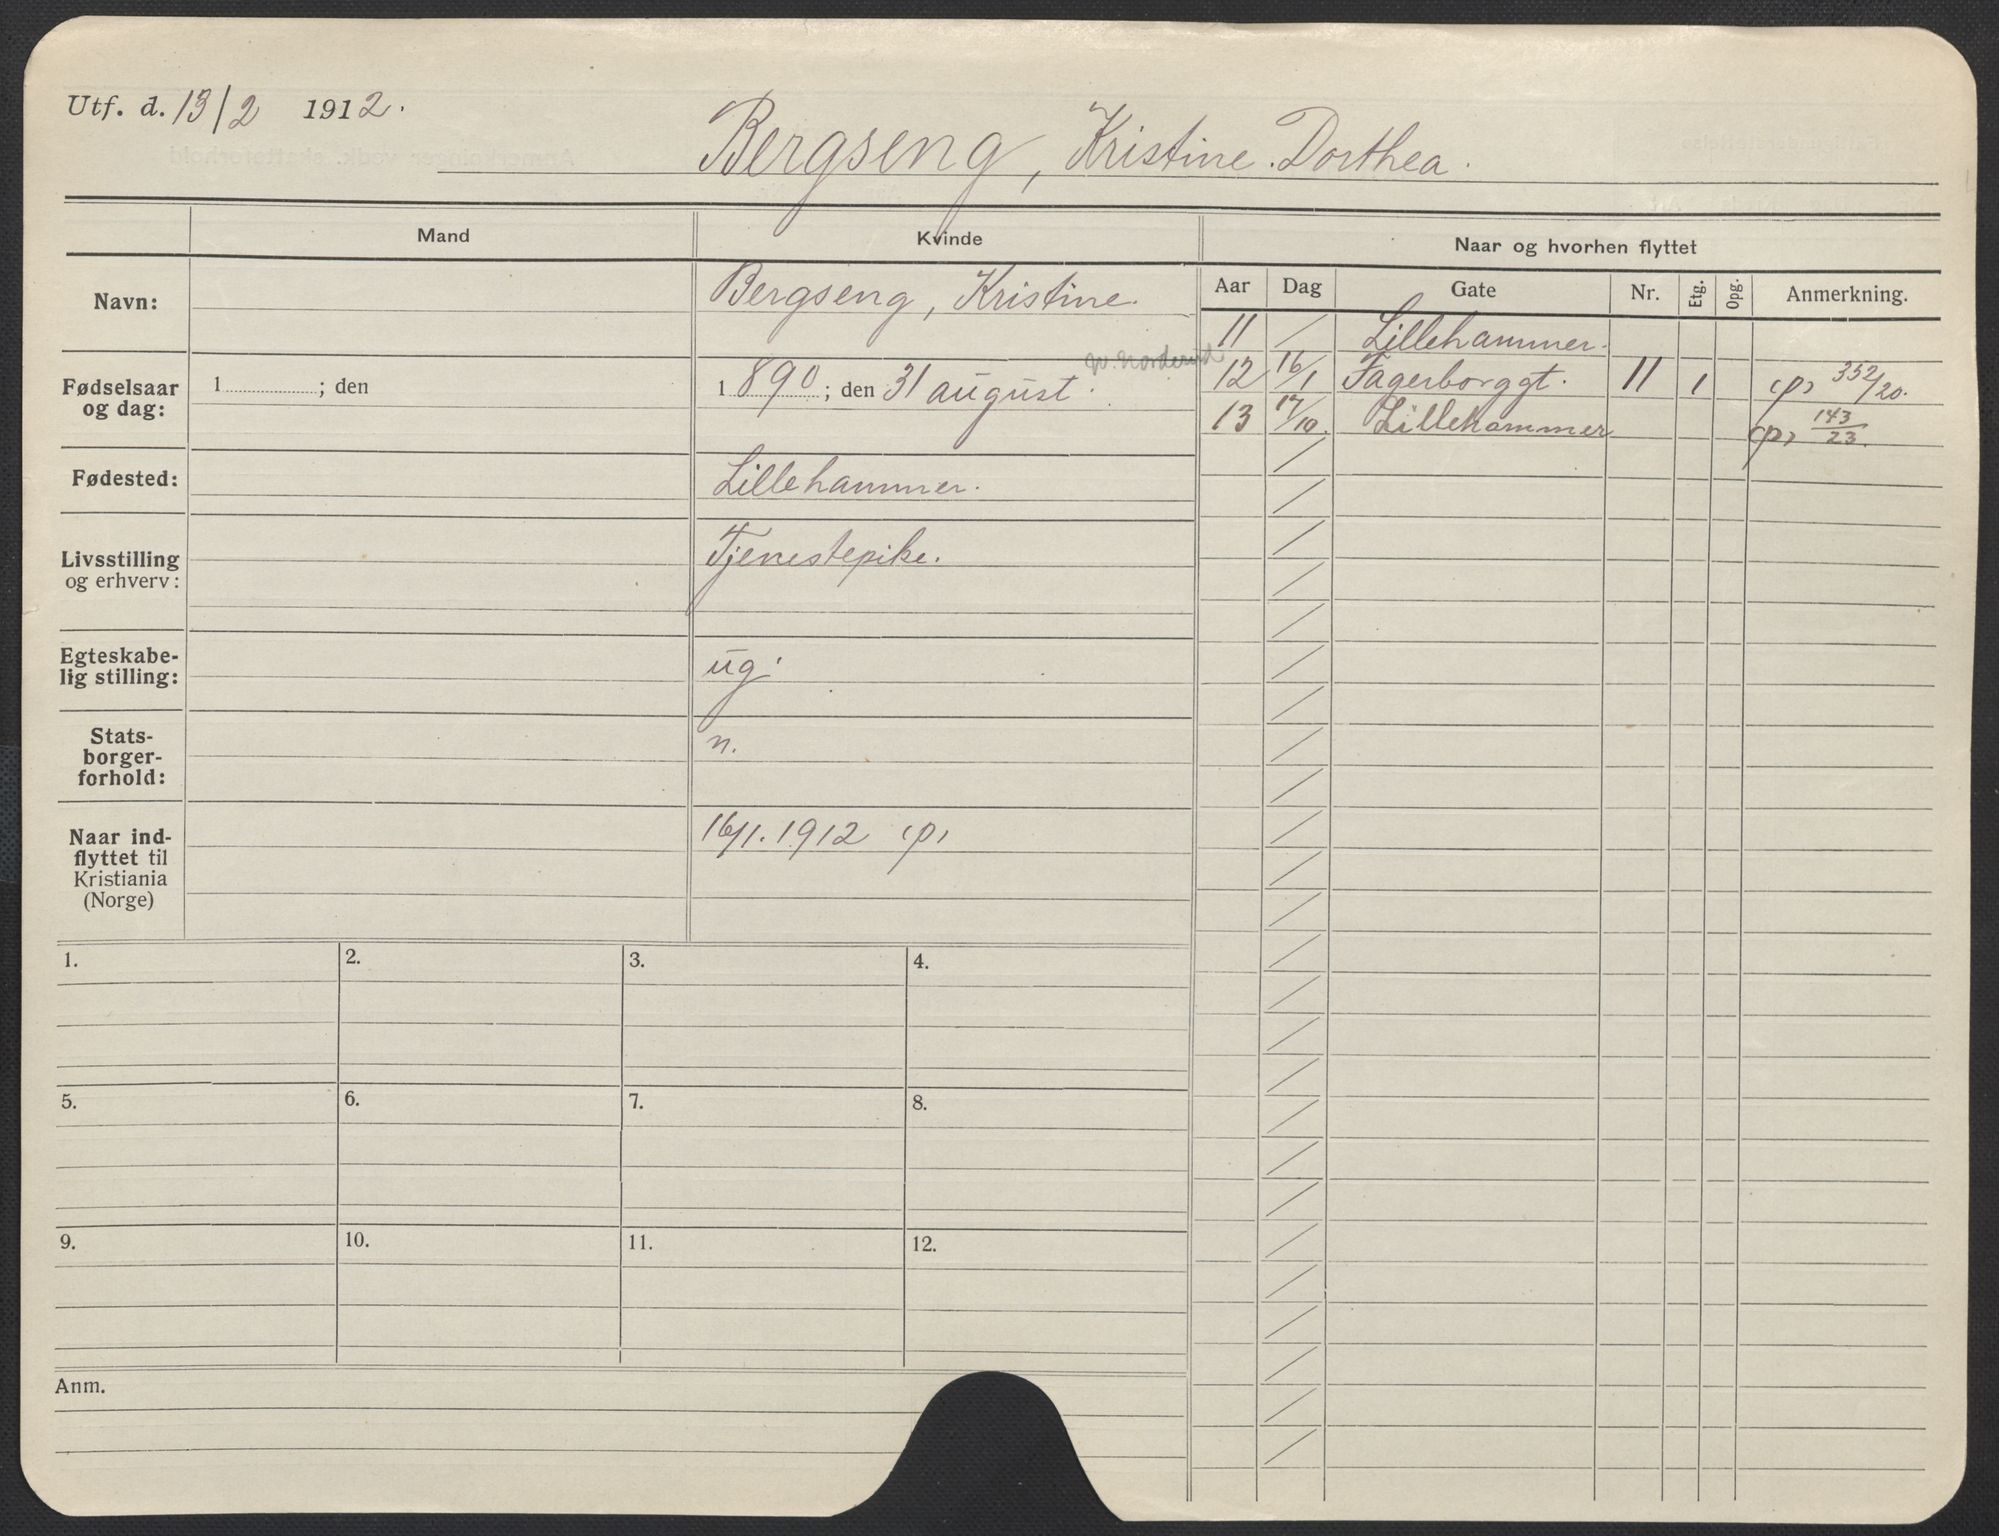 Utf. d. 13/2 1912.
Bergseng, Kristine Dorthea.
Mand
Kvinde
Naar og hvorhen flyttet
Navn:
Bergseng, Kristine.
Aar Dag Gate Nr. Etg. Opg. Anmerkning.
11 / Lillehammer.
Fødselsaar
og dag:
1 ; den
1 890 ; den 31 august.
12 16/1 Fagerborggt. 11 1 (p) 352/20.
13 17/10. Lillehammer (p) 143/23.
Fødested:
Lillehammer.
Livsstilling
og erhverv:
Tjenestepike.
Egteskabe-
lig stilling:
ug.
Stats-
borger-
forhold:
n.
Naar ind-
flyttet til
Kristiania
(Norge)
16/1. 1912 (p)
1. 2. 3. 4.
5. 6. 7. 8.
9. 10. 11. 12.
Anm.